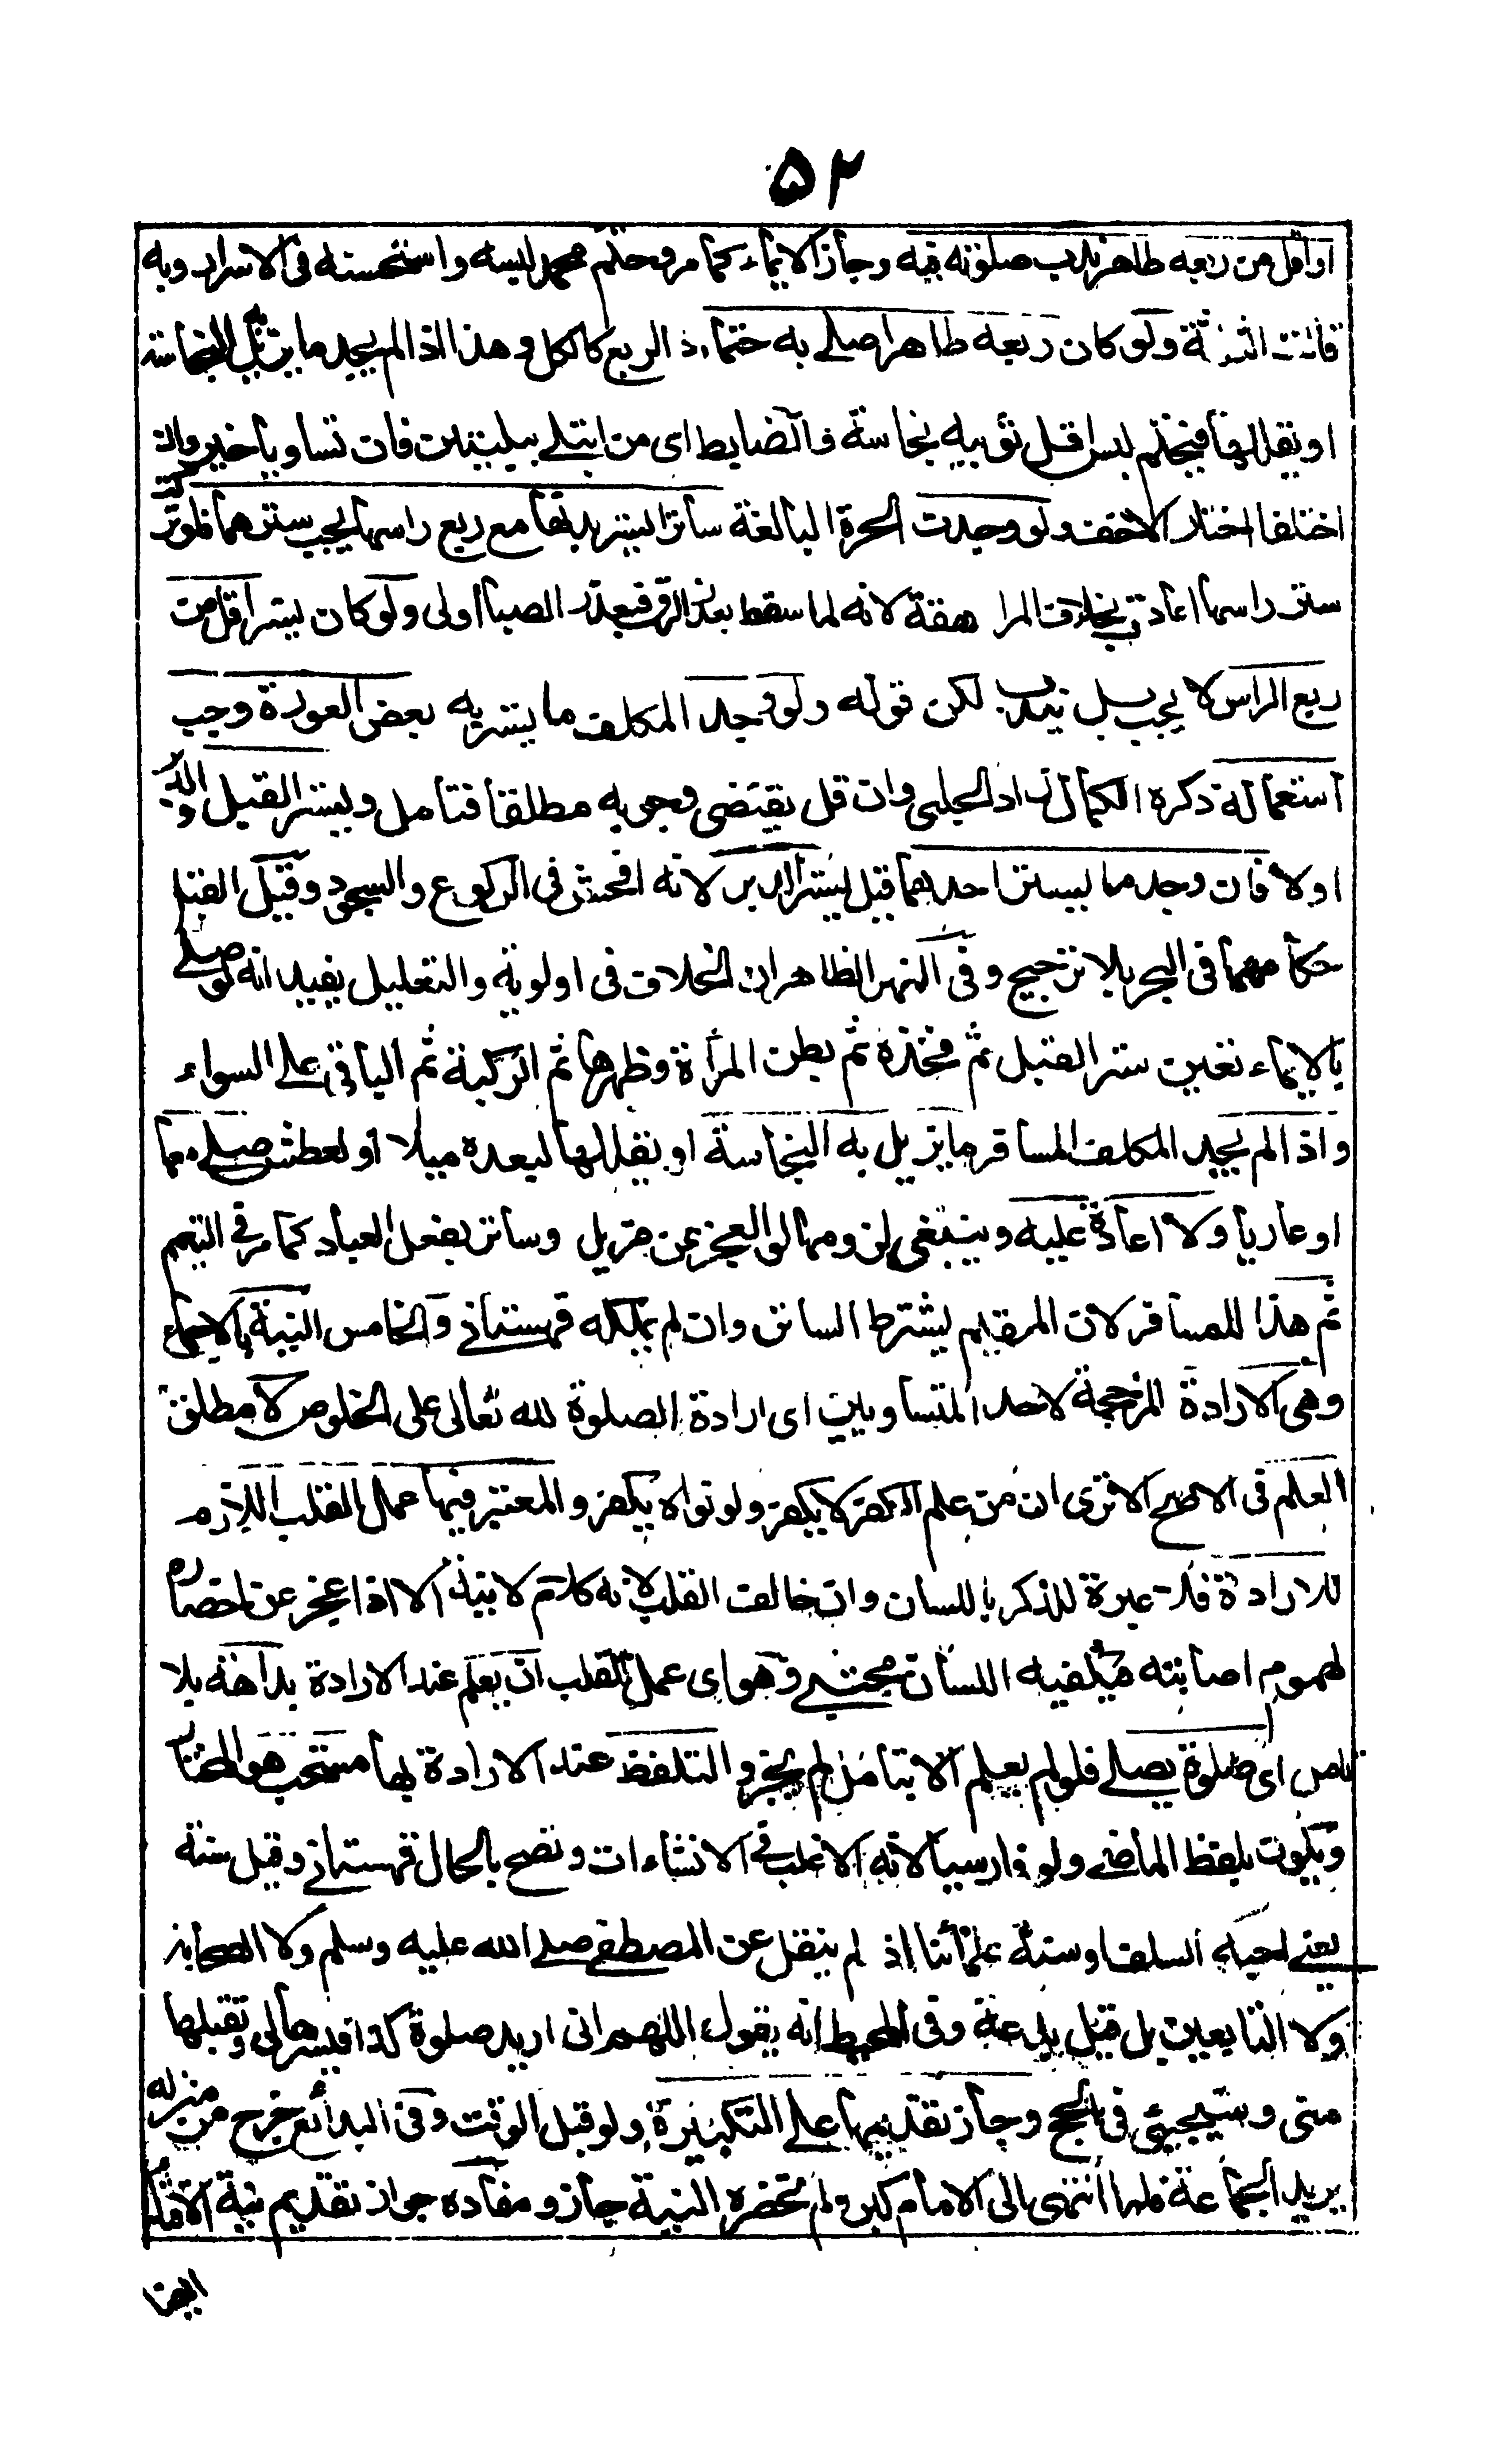 ۵۲
او اقل من ربعه طاهر ندب صلوته فيه وجاز الايماء كما مر وحتم محمد لبسه واستحسنه فى الاسرار وبه
قالت الثلثة ولو كان ربعه طاهرا صلے به حتما اذ الربع كالكل وهذا اذا لم يجد ما يزيل النجاسة
او يقللها فيتحتم لبس اقل ثوبيه نجاسة والضابط اى من ابتلے ببليتين فان تساويا خير وان
اختلفا اختار الاخف ولو وجدت الحرة البالغة ساترا يستر بدنها مع ربع راسها يجب سترهما فلو تركت
ستر راسها اعادت بخلاف المراهقة لانه لما سقط بعذر الرق فبعذر الصبا اولى ولو كان يستر اقل من
ربع الراس لا يجب بل يندب لكن قوله ولو وجد المكلف ما يستر به بعض العورة وجب
استعماله ذكره الكمال زاد الحلبى وان قل يقتضى وجوبه مطلقا فتامل ويستر القبل والدبر
اولا فان وجد ما يستر احدهما قيل يستر الدبر لانه افحش فى الركوع والسجود وقيل القبل
حكاهما فى البحر بلا ترجيح وفى النهر الظاهر ان الخلاف فى اولويه والتعليل يفيد انه لو صلے
بالايماء تعين ستر القبل ثم فخذه ثم بطن المرأة وظهرها ثم الركبة ثم الباقى علے السواء
واذا لم يجد المكلف المسافر ما يزيل به النجاسة او يقللها لبعده ميلا او لعطش صلے معها
او عاريا ولا اعادة عليه وينبغى لزومها لو العجز عن مزيل وساتر بفعل العباد كما مر فے التيمم
ثم هذا للمسافر لان المقيم يشترط الساتر وان لم يملكه قهستانے والخامس النية بالاجماع
وهى الارادة المرجحة لاحد المتساويين اى ارادة الصلوة لله تعالى على الخلوص لا مطلق
العلم فى الاصح الا ترى ان من علم الكفر لا يكفر ولو نواه يكفر والمعتبر فيها عمل القلب اللازم
للارادة فلا عبرة للذكر باللسان وان خالف القلب لانه كلام لا نية الا اذا عجز عن احضاره
لهموم اصابته فيكفيه اللسان مجتبے وهو اى عمل القلب ان يعلم عند الارادة بداهة بلا
تامل اى صلوة يصلے فلو لم يعلم الا بتامل لم يجز والتلفظ عند الارادة بها مستحب هو المختار
ويكون بلفظ الماضے ولو فارسيا لانه الاغلب فے الانشاءات وتصح بالحال قهستانے وقيل سنة
يعنے احبه السلف او سنة علمائنا اذ لم ينقل عن المصطفے صلے الله عليه وسلم ولا الصحابة
ولا التابعين بل قيل بدعة وفى المحيط انه يقول اللهم انى اريد صلوة كذا فيسرها لى وتقبلها
منى وسيجيئ فى الحج وجاز تقديمها علے التكبيرة ولو قبل الوقت وفى البدائع خرج من منزله
يريد الجماعة فلما انتهى الى الامام كبر ولم تحضره النية جاز ومفاده جواز تقديم نية الاقتداء
ايضا